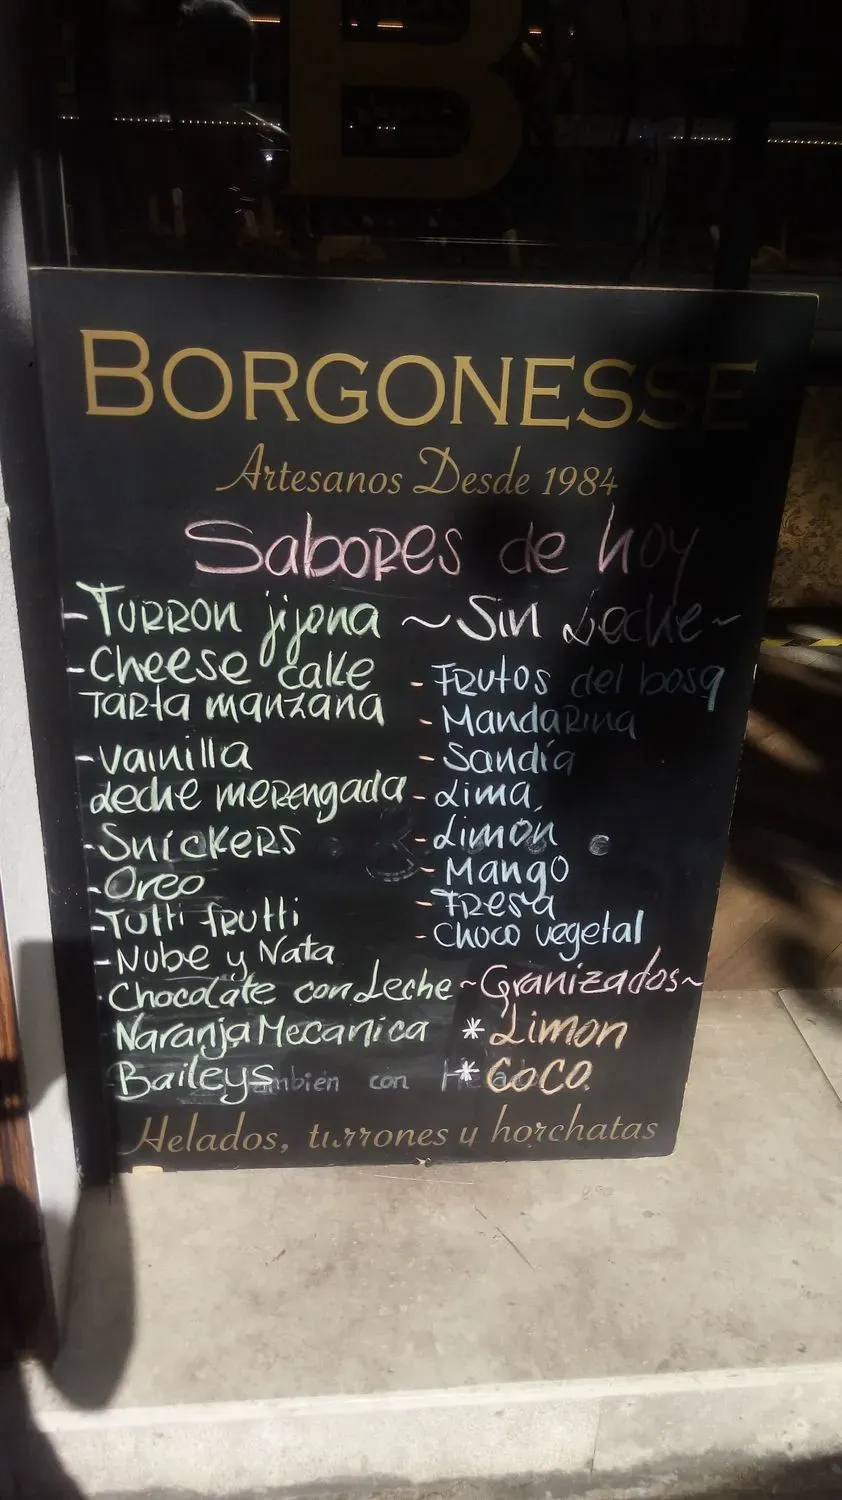 B
BORGONESSE
Artesanos Desde 1984
Sabores de hoy
- Turron jijona
- Cheese cake
Tarta manzana
- Vainilla
Leche merengada
- Snickers
- Oreo
- Tutti frutti
- Nube y Nata
- Chocolate con Leche
Naranja Mecanica
Baileys
~ Sin Leche ~
- Frutos del bosq
- Mandarina
- Sandía
- Lima
- Limón
- Mango
- Fresa
- Choco vegetal
~ Granizados ~
* Limon
* Coco.
también con
Helados, turrones y horchatas